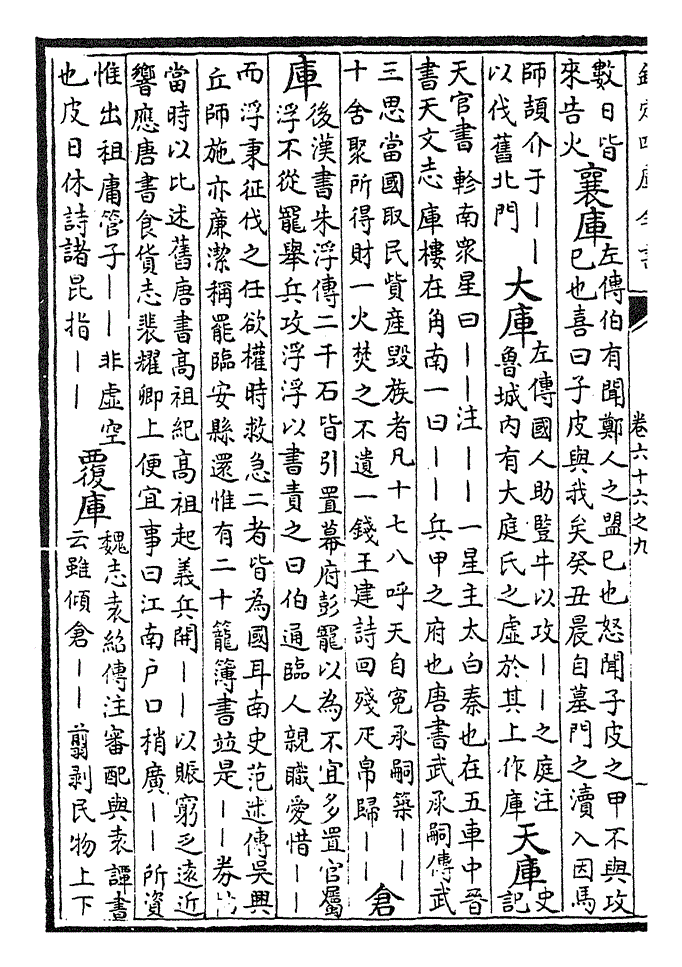 欽定四庫全書
卷六十六之九
數日皆
來告火
襄庫
左傳伯有聞鄭人之盟已也怒聞子皮之甲不與攻
已也喜曰子皮與我矣癸丑晨自墓門之瀆入因馬
師頡介于｜｜
以伐舊北門
大庫
左傳國人助豎牛以攻｜｜之庭注
魯城内有大庭氏之虛於其上作庫
天庫
史
記
天官書軫南衆星曰｜｜注｜｜一星主太白秦也在五車中晉
書天文志庫樓在角南一曰｜｜兵甲之府也唐書武承嗣傳武
三思當國取民貲産毀族者凡十七八呼天自冤承嗣築｜｜
十舍聚所得財一火焚之不遺一錢王建詩回殘疋帛歸｜｜
倉
庫
後漢書朱浮傳二千石皆引置幕府彭寵以為不宜多置官屬
浮不從寵舉兵攻浮浮以書責之曰伯通臨人親職愛惜｜｜
而浮秉征伐之任欲權時救急二者皆為國耳南史范述傳吳興
丘師施亦廉潔稱罷臨安縣還惟有二十籠簿書並是｜｜券
當時以比述舊唐書高祖紀高祖起義兵開｜｜以賑窮乏遠近
響應唐書食貨志裴耀卿上便宜事曰江南户口稍廣｜｜所資
惟出租庸管子｜｜非虛空
也皮日休詩諸昆指｜｜
覆庫
魏志袁紹傳注審配與袁譚書
云雖傾倉｜｜翦剥民物上下